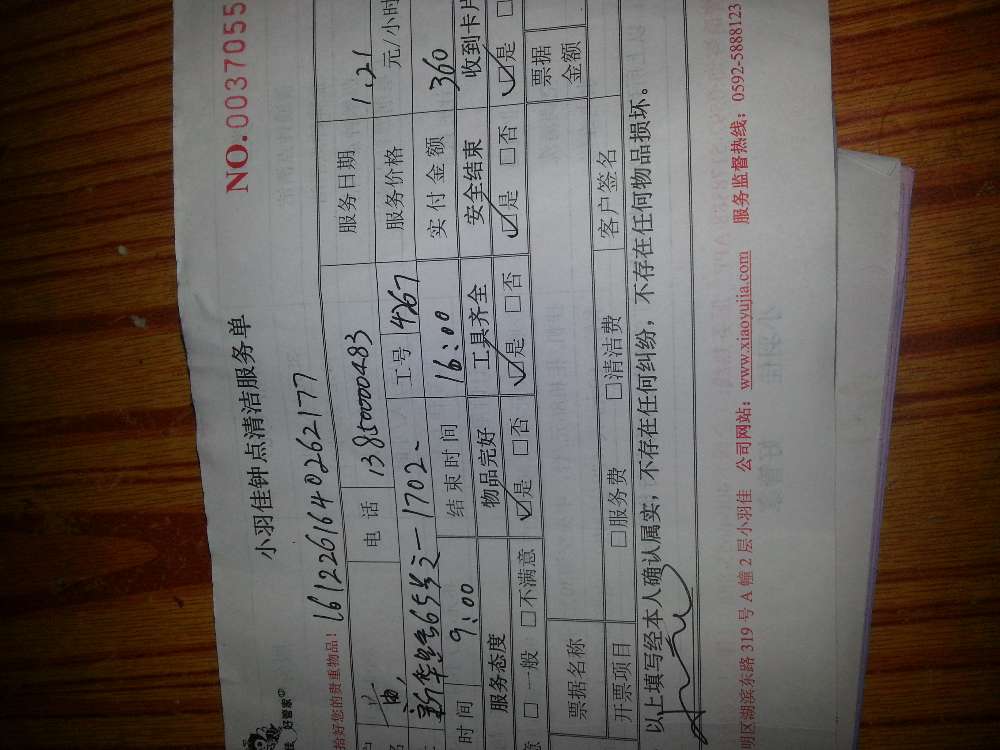 小羽佳钟点清洁服务单
NO.0037055
好管家
拾好您的贵重物品! 1612261640262177
黄 电 话 13850000483 服务日期 1.21
新华路65号之一1702 工号 4267 服务价格 元/小时
时间 9:00 结束时间 16:00 实付金额 360
服务态度 物品完好 工具齐全 安全结束 收到卡片
意 □一般 □不满意 ☑是 □否 ☑是 □否 ☑是 □否 ☑是 □
票据名称 票据金额
开票项目 □服务费 □清洁费 客户签名
以上填写经本人确认属实,不存在任何纠纷,不存在任何物品损坏。
明区湖滨东路 319 号 A 幢 2 层小羽佳 公司网站:www.xiaoyujia.com 服务监督热线:0592-5888123